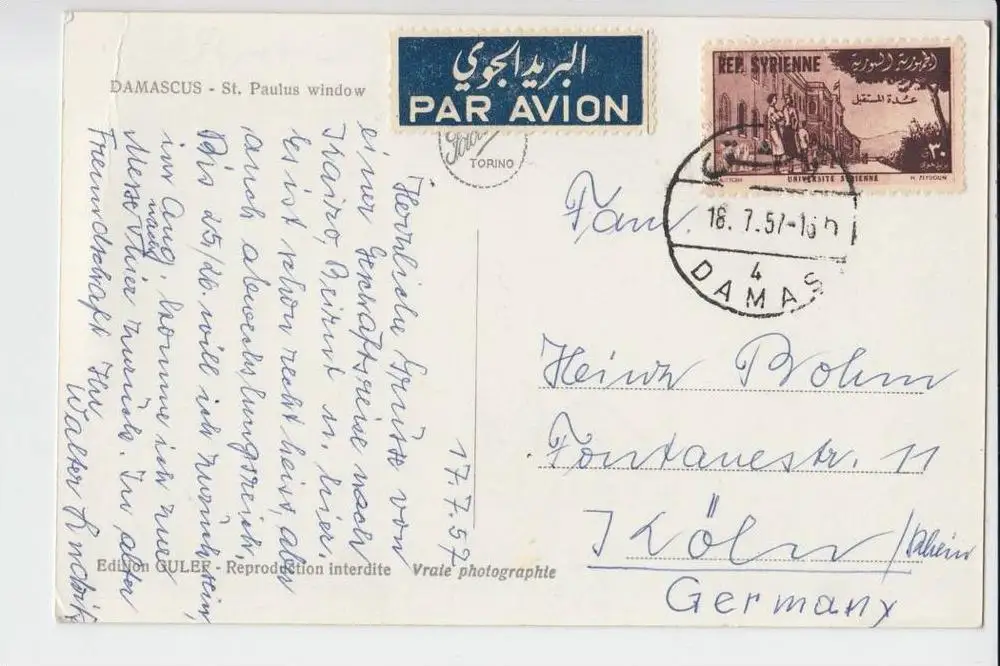 DAMASCUS - St. Paulus window
البريد الجوي
PAR AVION
TORINO
REP. SYRIENNE
الجمهورية السورية
عدة المستقبل
٣٠
UNIVERSITE SYRIENNE
H. ZEYDOUN
18. 7. 57-18
4
DAMAS
17.7.57
Herzliche Grüsse von
einer Geschäftsreise nach
Kairo, Beirut u. hier.
Es ist schon recht heiss, aber
auch abwechslungsreich.
Bis 25/26. will ich zurück sein,
im Aug. komme ich zur
Messe nach hier zurück. In alter
Freundschaft Ihr
Walter
Fam.
Heinz Bohm
Fontanestr. 11
Köln /Rhein
Germany
Edition GULEF - Reproduction interdite Vraie photographie